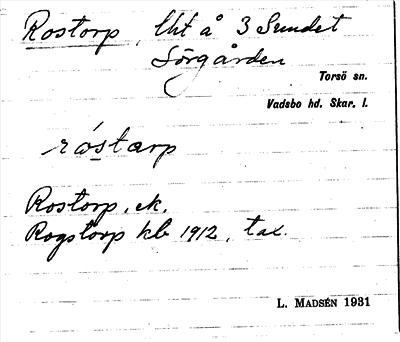 Rostorp, lht å 3 Sundet
Sörgården
Torsö sn.
Vadsbo hd. Skar. l.
róstarp
Rostorp, ek.
Rogstorp kb 1912, tax.
L. MADSÉN 1931